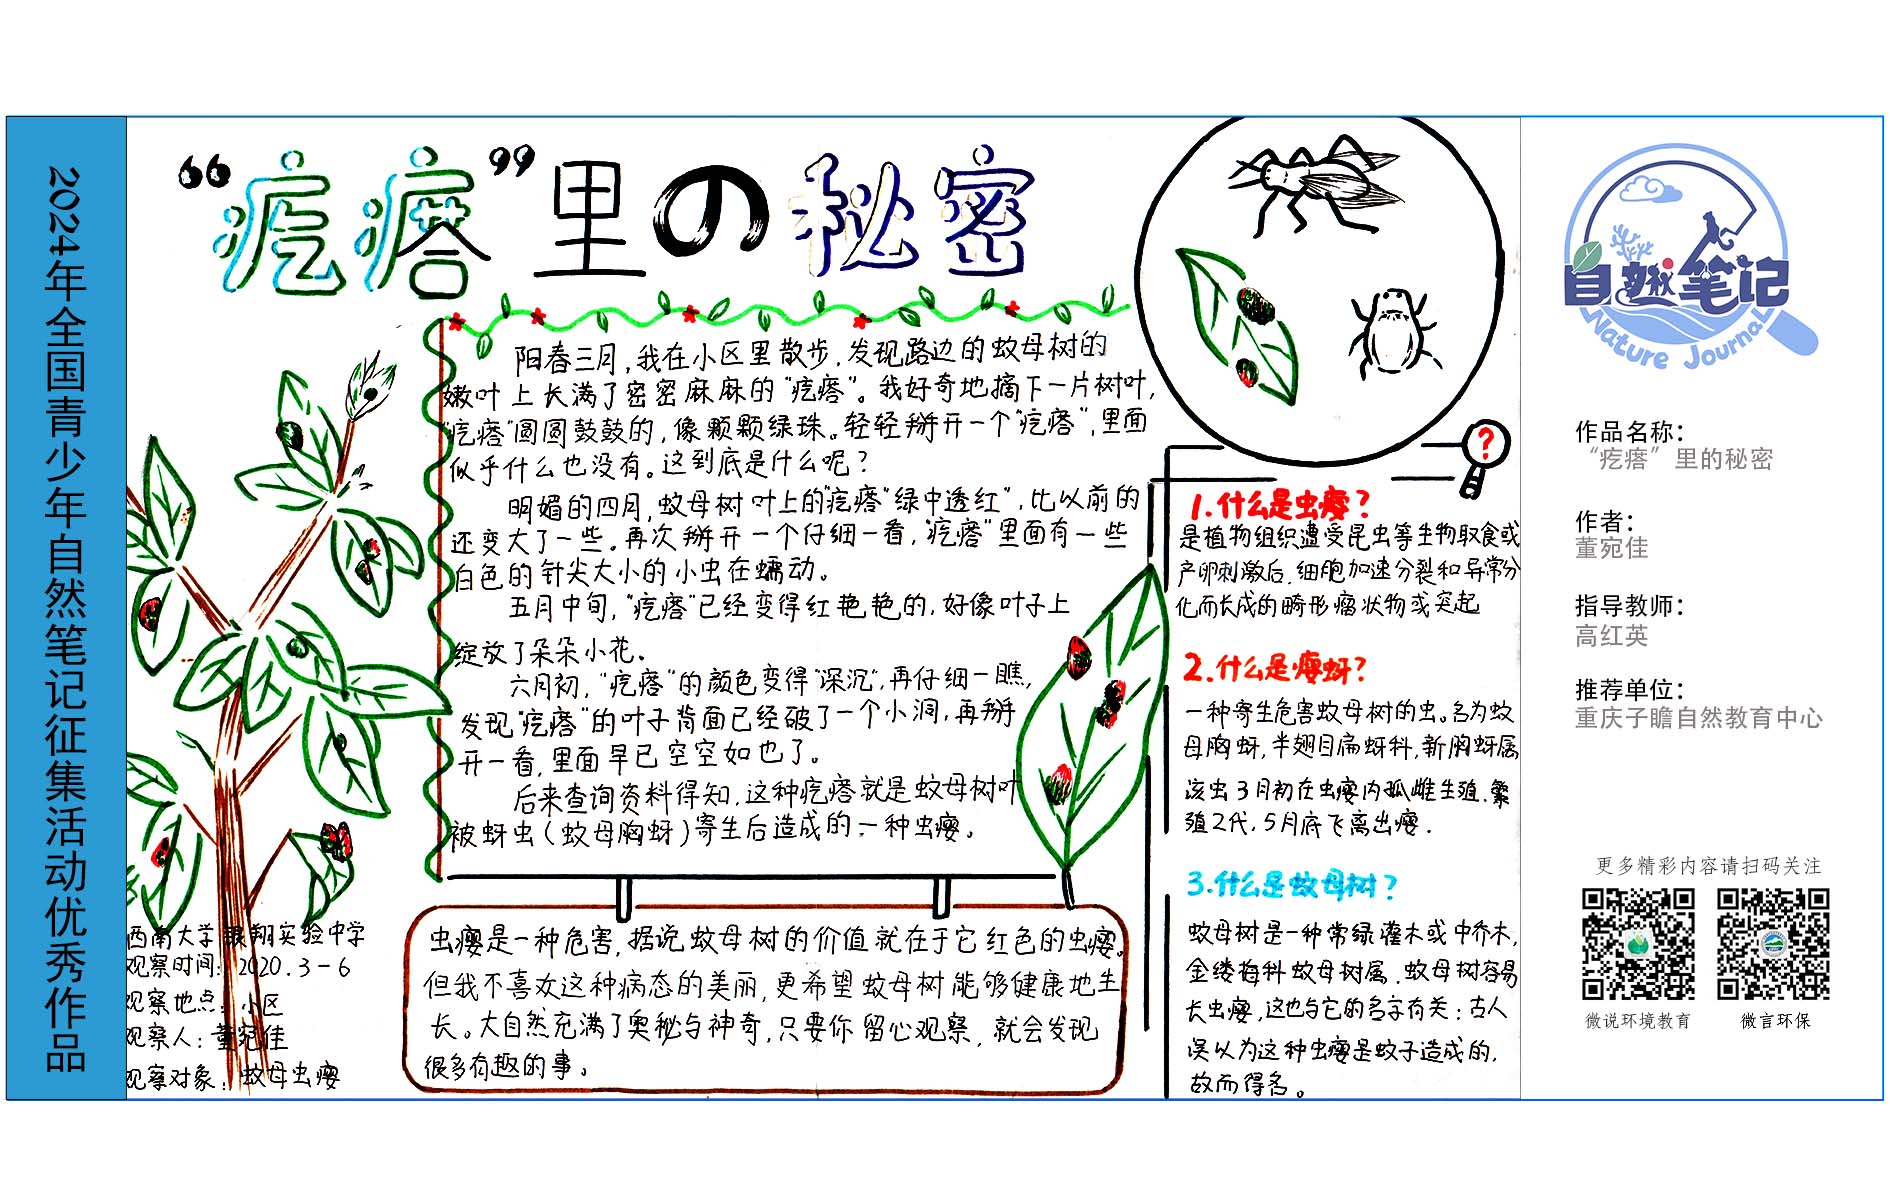 2024年全国青少年自然笔记征集活动优秀作品
“疙瘩”里の秘密
阳春三月，我在小区里散步，发现路边的蚊母树的
嫩叶上长满了密密麻麻的“疙瘩”。我好奇地摘下一片树叶，
“疙瘩”圆圆鼓鼓的，像颗颗绿珠。轻轻掰开一个“疙瘩”，里面
似乎什么也没有。这到底是什么呢？
明媚的四月，蚊母树叶上的“疙瘩”“绿中透红”，比以前的
还变大了一些。再次掰开一个仔细一看，“疙瘩”里面有一些
白色的针尖大小的小虫在蠕动。
五月中旬，“疙瘩”已经变得红艳艳的，好像叶子上
绽放了朵朵小花。
六月初，“疙瘩”的颜色变得“深沉”，再仔细一瞧，
发现“疙瘩”的叶子背面已经破了一个小洞，再掰
开一看，里面早已空空如也了。
后来查询资料得知，这种疙瘩就是蚊母树叶
被蚜虫（蚊母胸蚜）寄生后造成的，一种虫瘿。
虫瘿是一种危害，据说蚊母树的价值就在于它红色的虫瘿。
但我不喜欢这种病态的美丽，更希望蚊母树能够健康地生
长。大自然充满了奥秘与神奇，只要你留心观察，就会发现
很多有趣的事。
西南大学银翔实验中学
观察时间：2020.3-6
观察地点：小区
观察人：董宛佳
观察对象：蚊母虫瘿
?
1.什么是虫瘿？
是植物组织遭受昆虫等生物取食或
产卵刺激后，细胞加速分裂和异常分
化而长成的畸形瘤状物或突起
2.什么是瘿蚜？
一种寄生危害蚊母树的虫。名为蚊
母胸蚜，半翅目扁蚜科，新胸蚜属
该虫3月初在虫瘿内孤雌生殖，繁
殖2代，5月底飞离出瘿．
3.什么是蚊母树？
蚊母树是一种常绿灌木或中乔木，
金缕梅科蚊母树属．蚊母树容易
长虫瘿，这也与它的名字有关：古人
误以为这种虫瘿是蚊子造成的，
故而得名。
自然笔记
Nature Journal
作品名称：
“疙瘩”里的秘密
作者：
董宛佳
指导教师：
高红英
推荐单位：
重庆子瞻自然教育中心
更多精彩内容请扫码关注
微说环境教育
微言环保